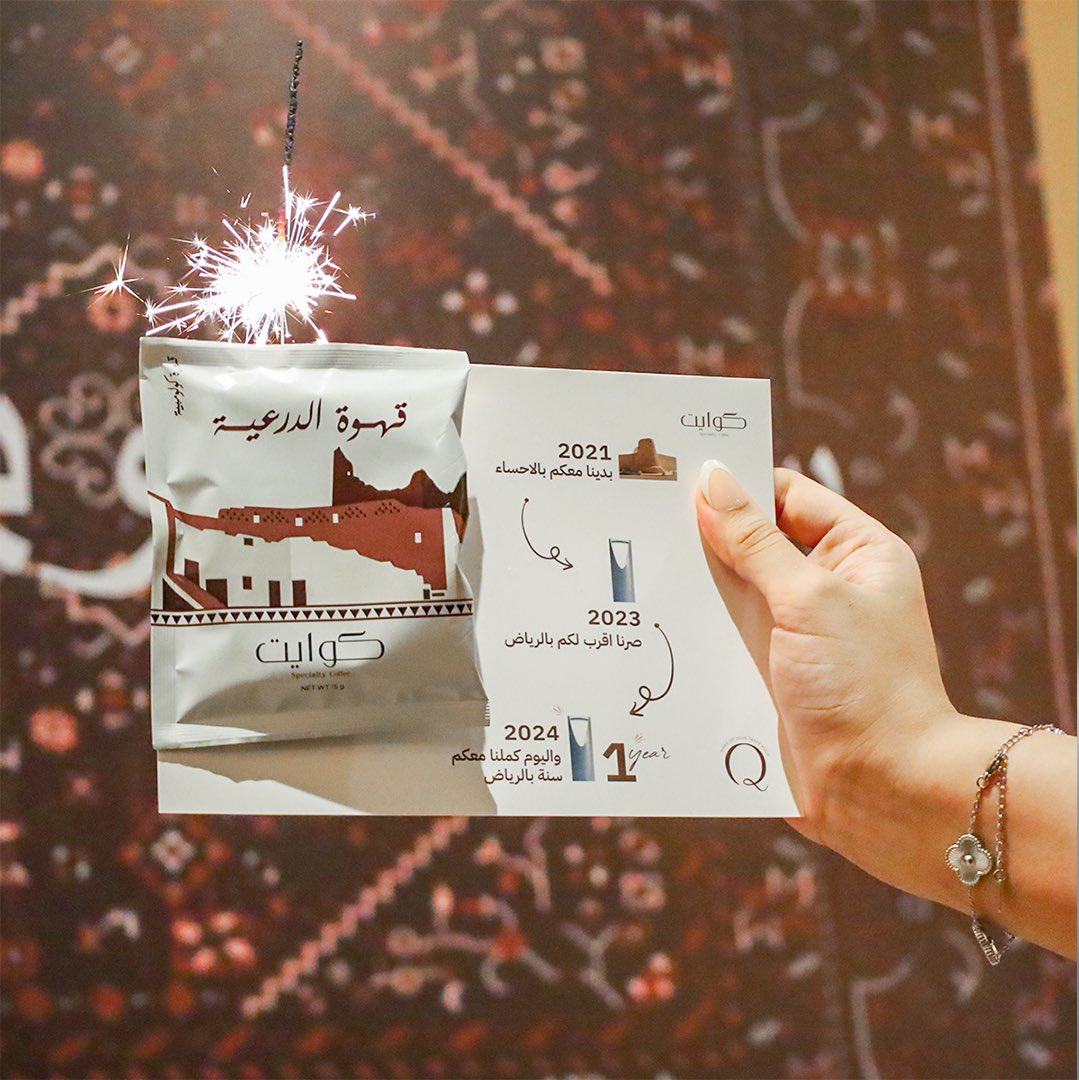 قهوة كولومبية
قهوة الدرعية
كوايت
Specialty Coffee
NET WT 15 g
كوايت
Specialty Coffee
2021
بدينا معكم بالاحساء
2023
صرنا اقرب لكم بالرياض
2024
واليوم كملنا معكم
سنة بالرياض
1 year
Q